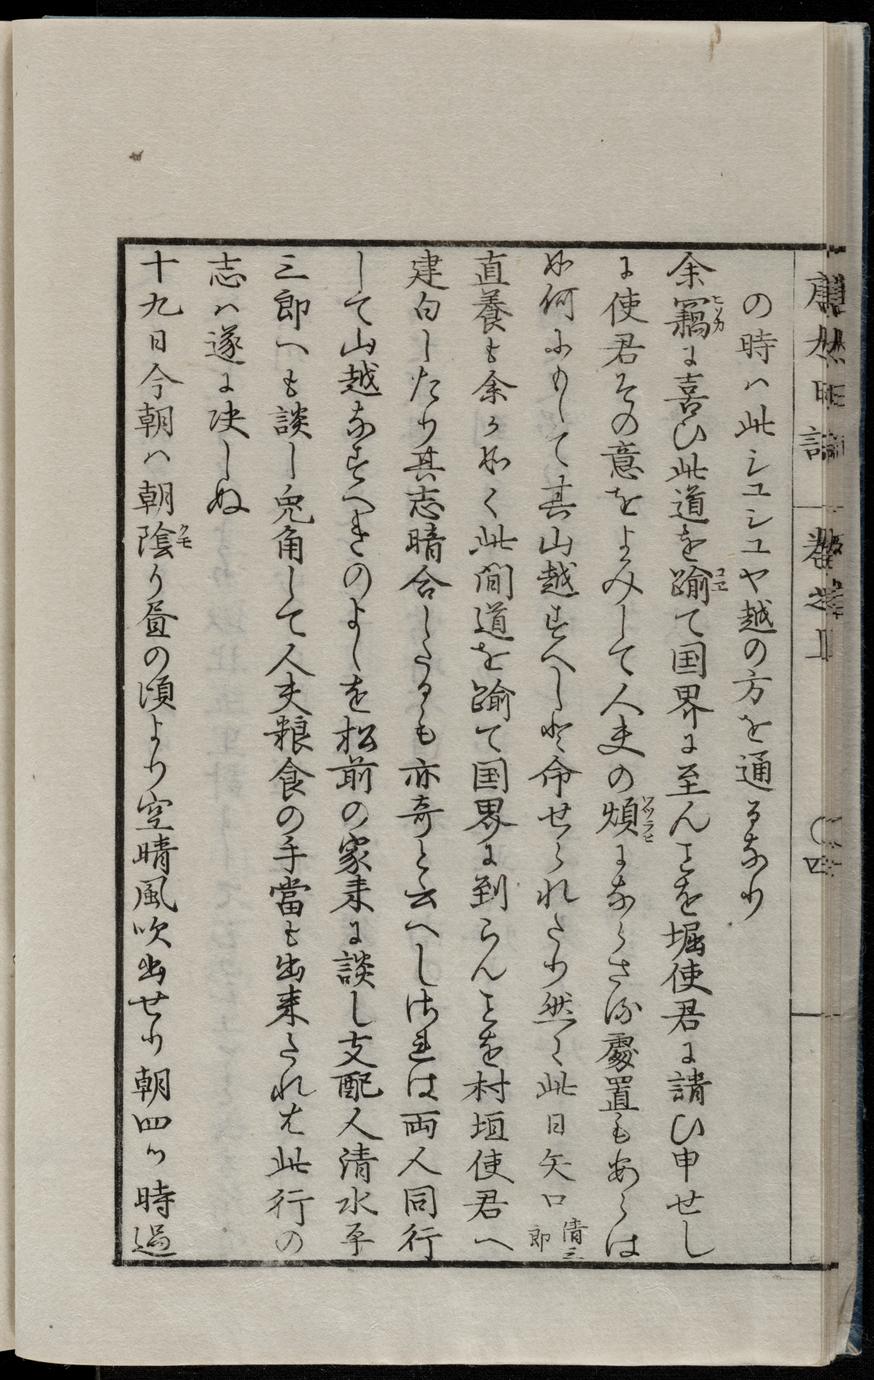 の時ハ此シユシユヤ越の方を通るなり
余竊ヒソカに喜ひ此道を踰コエて国界に至んことを堀使君に請ひ申せし
に使君その意をよみして人夫の煩ワツラヒにならさる處置もあらは
如何にもして其山越すへしと命せられたり然るに此日矢口清三郎
直養も余か如く此間道を踰て国界に到らんことを村垣使君へ
建白したり其志暗合したるも亦奇と云へしされは両人同行
して山越なすへきのよしを松前の家来に談し支配人清水平
三郎へも談し兎角して人夫粮食の手當も出来たれは此行の
志ハ遂に决しぬ
十九日今朝ハ朝陰クモり昼の頃より空晴風吹出せり朝四ツ時過
日誌